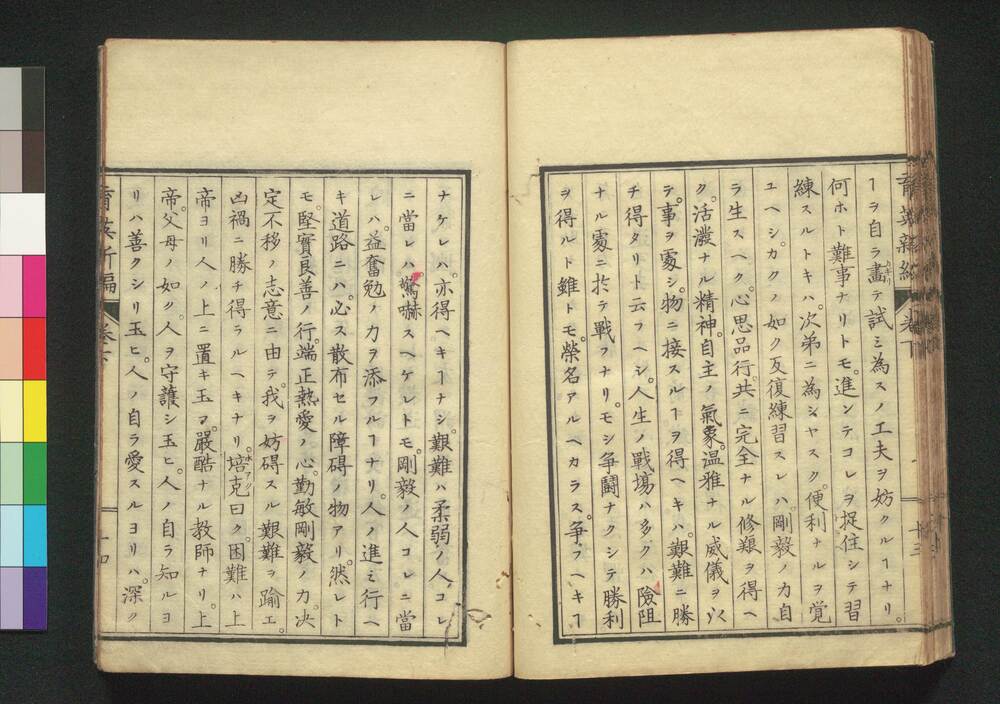 育英新編 卷下 十三
ヿヲ自ラ畫カギリテ試ミ為スノ工夫ヲ妨クルヿナリ。
何ホト難事ナリトモ。進ンテコレヲ捉住シテ習
練スルトキハ。次第ニ為シヤスク。便利ナルヲ覚
ユヘシ。カクノ如ク反復練習スレハ。剛毅ノ力自
ラ生スヘク。心思品行。共ニ完全ナル修練ヲ得ヘ
ク。活溌ナル精神。自主ノ氣象。温雅ナル威儀ヲ以
テ。事ヲ處シ。物ニ接スルヿヲ得ヘキハ。艱難ニ勝
チ得タリト云フヘシ。人生ノ戰場ハ多クハ險阻
ナル處ニ於テ戰フナリ。モシ争鬪ナクシテ勝利
ヲ得ルト雖トモ。榮名アルヘカラス。争フヘキヿ
ナケレハ。亦得ヘキヿナシ。艱難ハ柔弱ノ人。コレ
ニ當レハ。驚嚇スヘケレトモ。剛毅ノ人コレニ當
レハ。益奮勉ノ力ヲ添フルヿナリ。人ノ進ミ行ヘ
キ道路ニハ。必ス散布セル障碍ノ物アリ。然レト
モ。堅實良善ノ行。端正熱愛ノ心。勤敏剛毅ノ力。决
定不移ノ志意ニ由テ。我ヲ妨碍スル艱難ヲ踰エ。
凶禍ニ勝チ得ラルヘキナリ。培克曰ク。困難ハ上
帝ヨリ人ノ上ニ置キ玉フ。嚴酷ナル教師ナリ。上
帝。父母ノ如ク。人ヲ守護シ玉ヒ。人ノ自ラ知ルヨ
リハ善クシリ玉ヒ。人ノ自ラ愛スルヨリハ。深ク
育英新編 卷下 十四